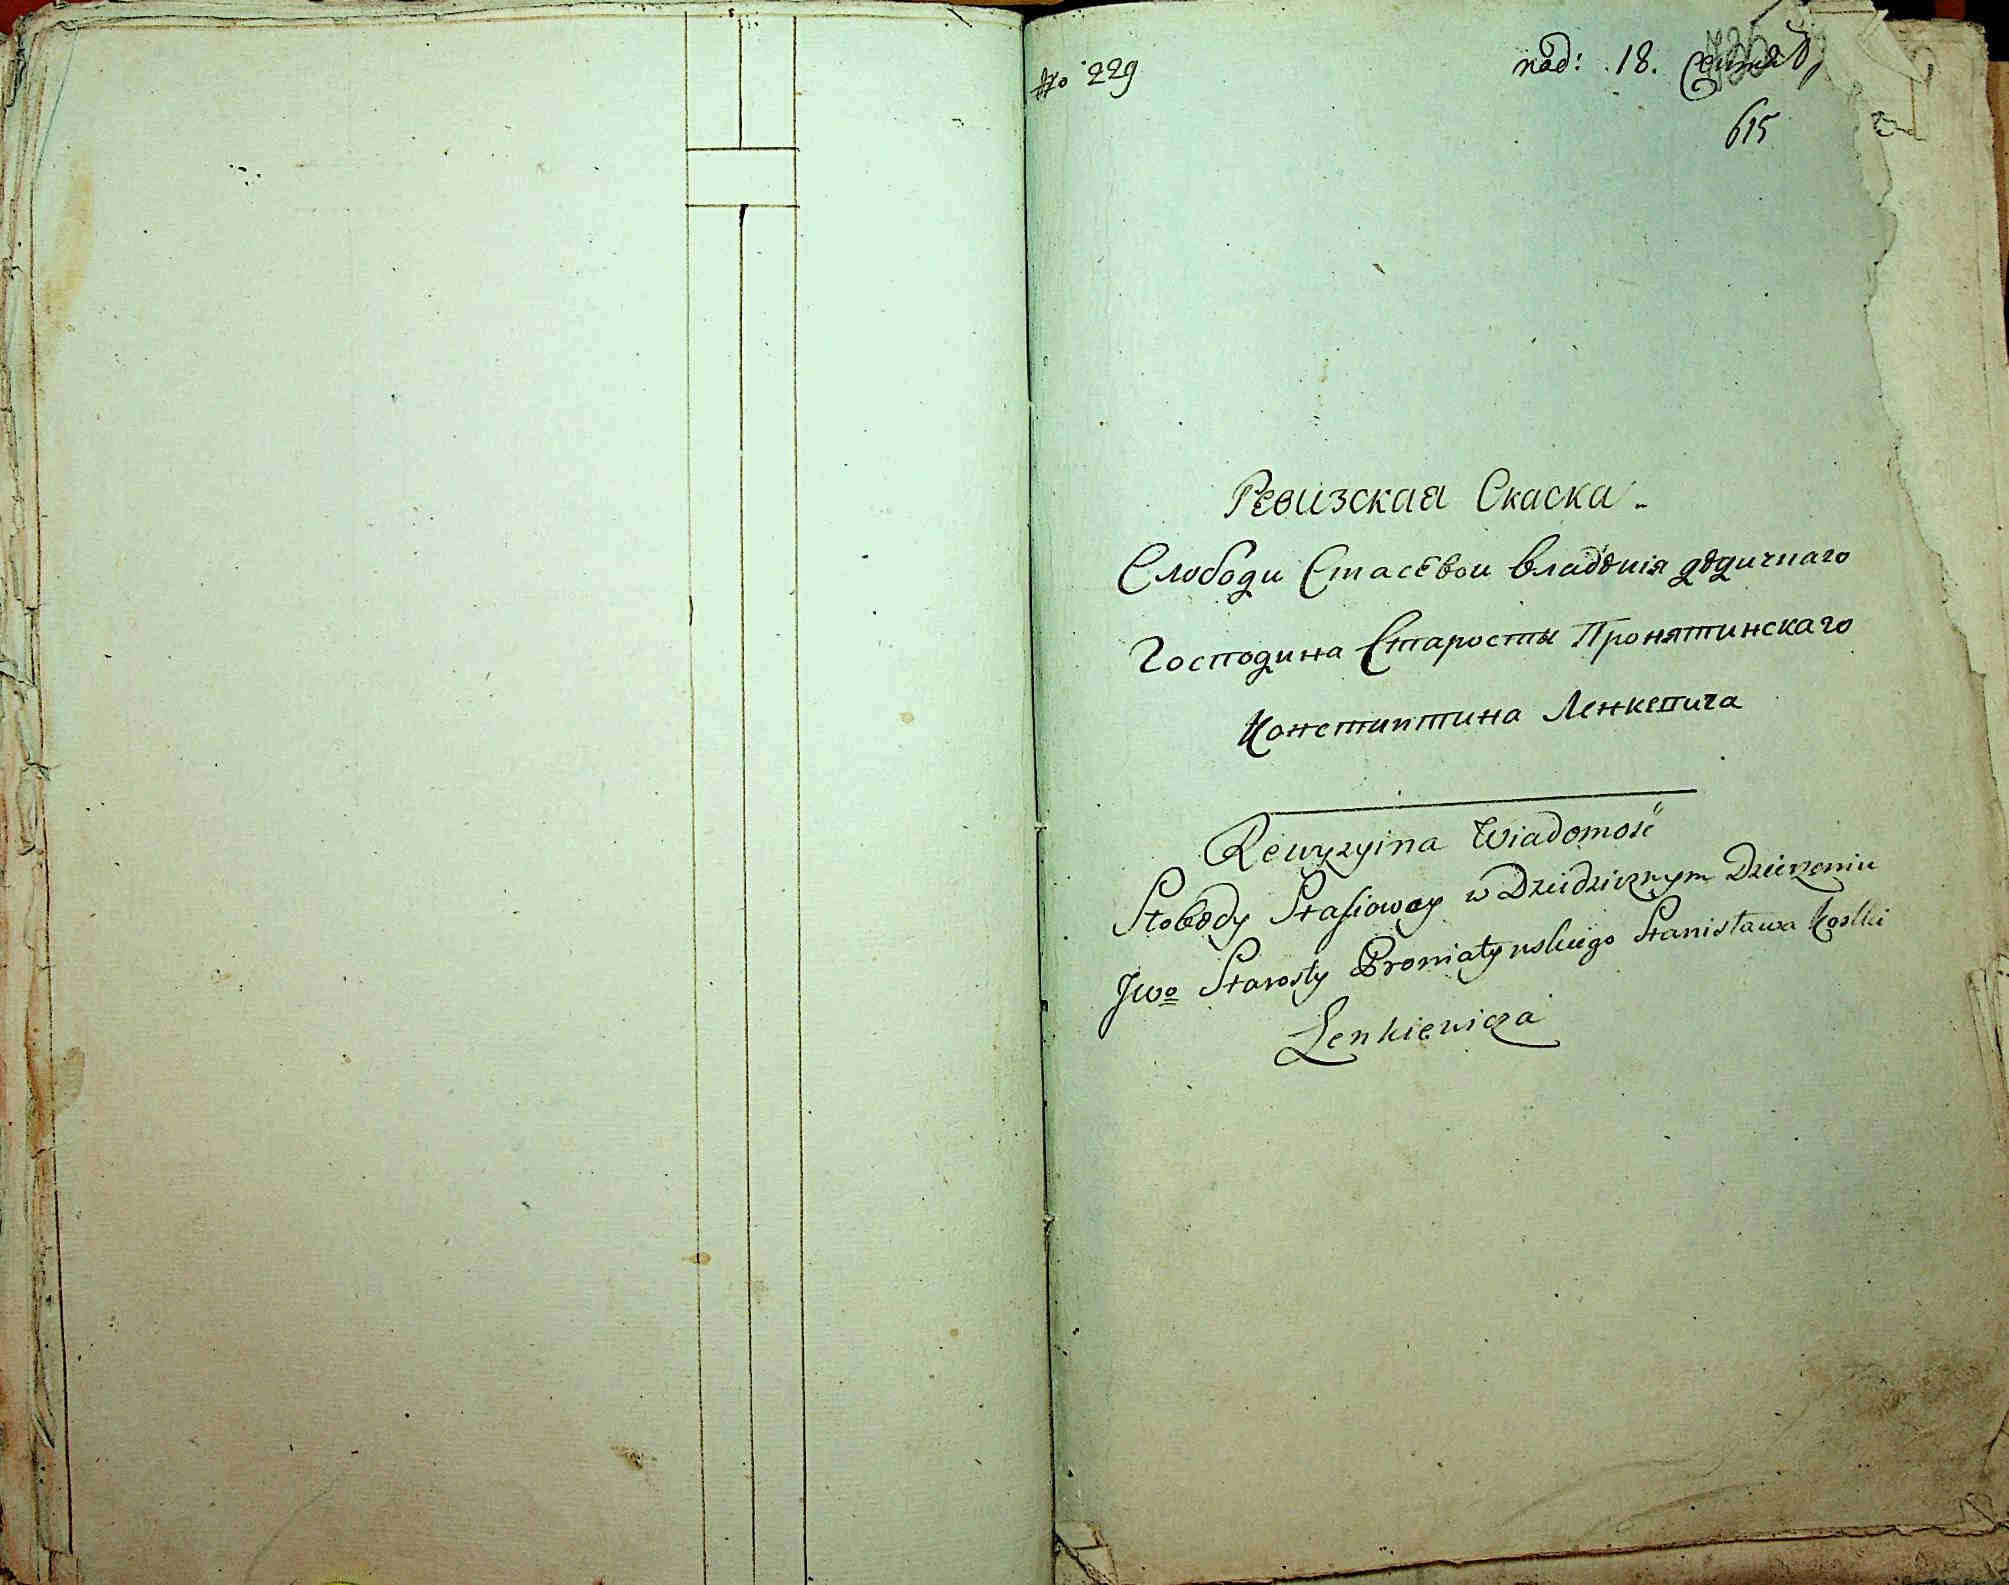 № 229
под: 18.
615
Ревизская Скаска.
Слободи Стасёвои владѣнія дѣдичнаго
Господина Старосты Пронятинскаго
Константина Ленкевича
Rewyzyina Wiadomość
Słobody Stasiowey w Dzeidzicznym Dzierzeniu
Jwo Starosty Proniatynskiego Stanisława Kostki
Lenkiewicza